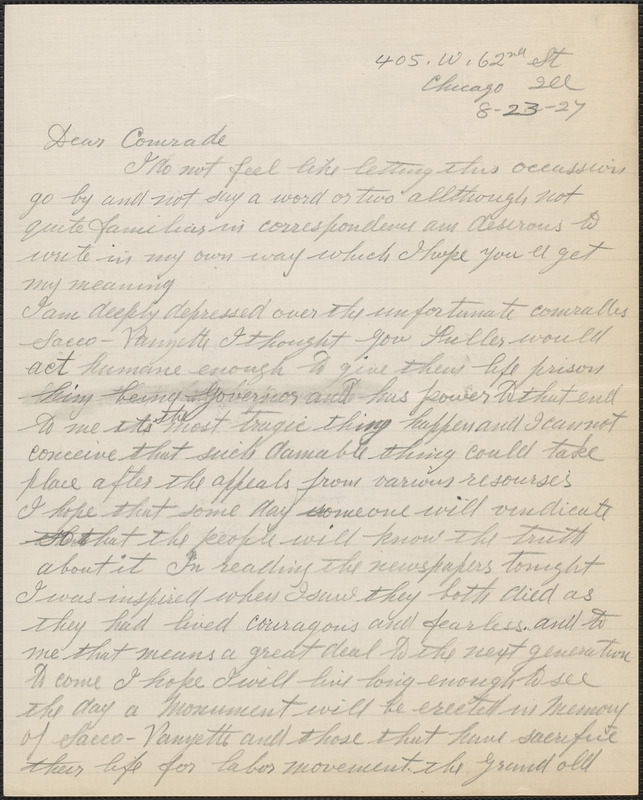 405. W. 62nd St
Chicago Ill
8-23-27
Dear Comrade
I do not feel like letting this occassion
go by and not say a word or two allthough not
quite familiar in correspondence am desirous to
write in my own way which I hope you ll get
my meaning
I am deeply depressed over the unfortunate comrades
Sacco-Vanzetti I thought Gov Fuller would
act humane enough to give them life prison
being Governor and has power to that end
to me its the most tragic thing happen and I cannot
conceive that such damable thing could take
place after the appeals from various resourses
I hope that some day someone will vindicate
that the people will know the truth
about it In reading the newspapers tonight
I was inspired when I saw they both died as
they had lived couragous and fearless. and to
me that means a great deal to the next generation
to come I hope I will live long enough to see
the day a Monument will be erected in Memory
of Sacco-Vanzetti and those that have sacrifice
their life for labor movement. the Grand old